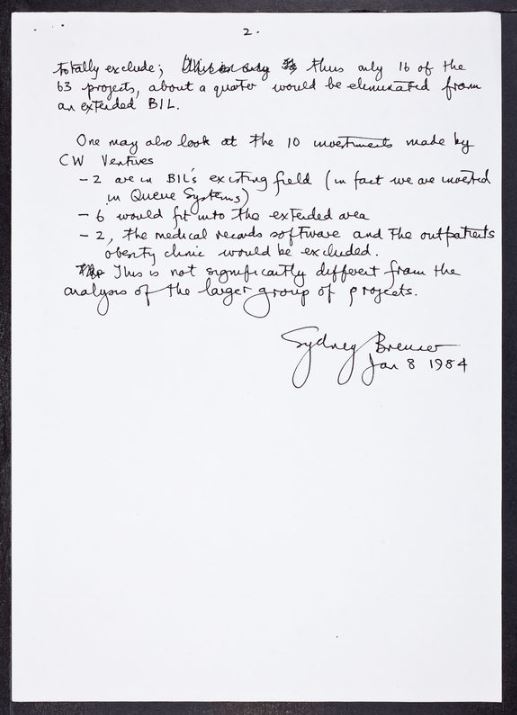 2.
totally exclude; thus only 16 of the
63 projects, about a quater would be eliminated from
an extended BIL.
One may also look at the 10 investments made by
CW Ventures
- 2 are in BIL's existing field (in fact we are invested
in Queue Systems)
- 6 would fit into the extended area
- 2, the medical records software and the outpatients
obesity clinic would be excluded.
This is not significantly different from the
analysis of the larger group of projects.
Sydney Brenner
Jan 8 1984